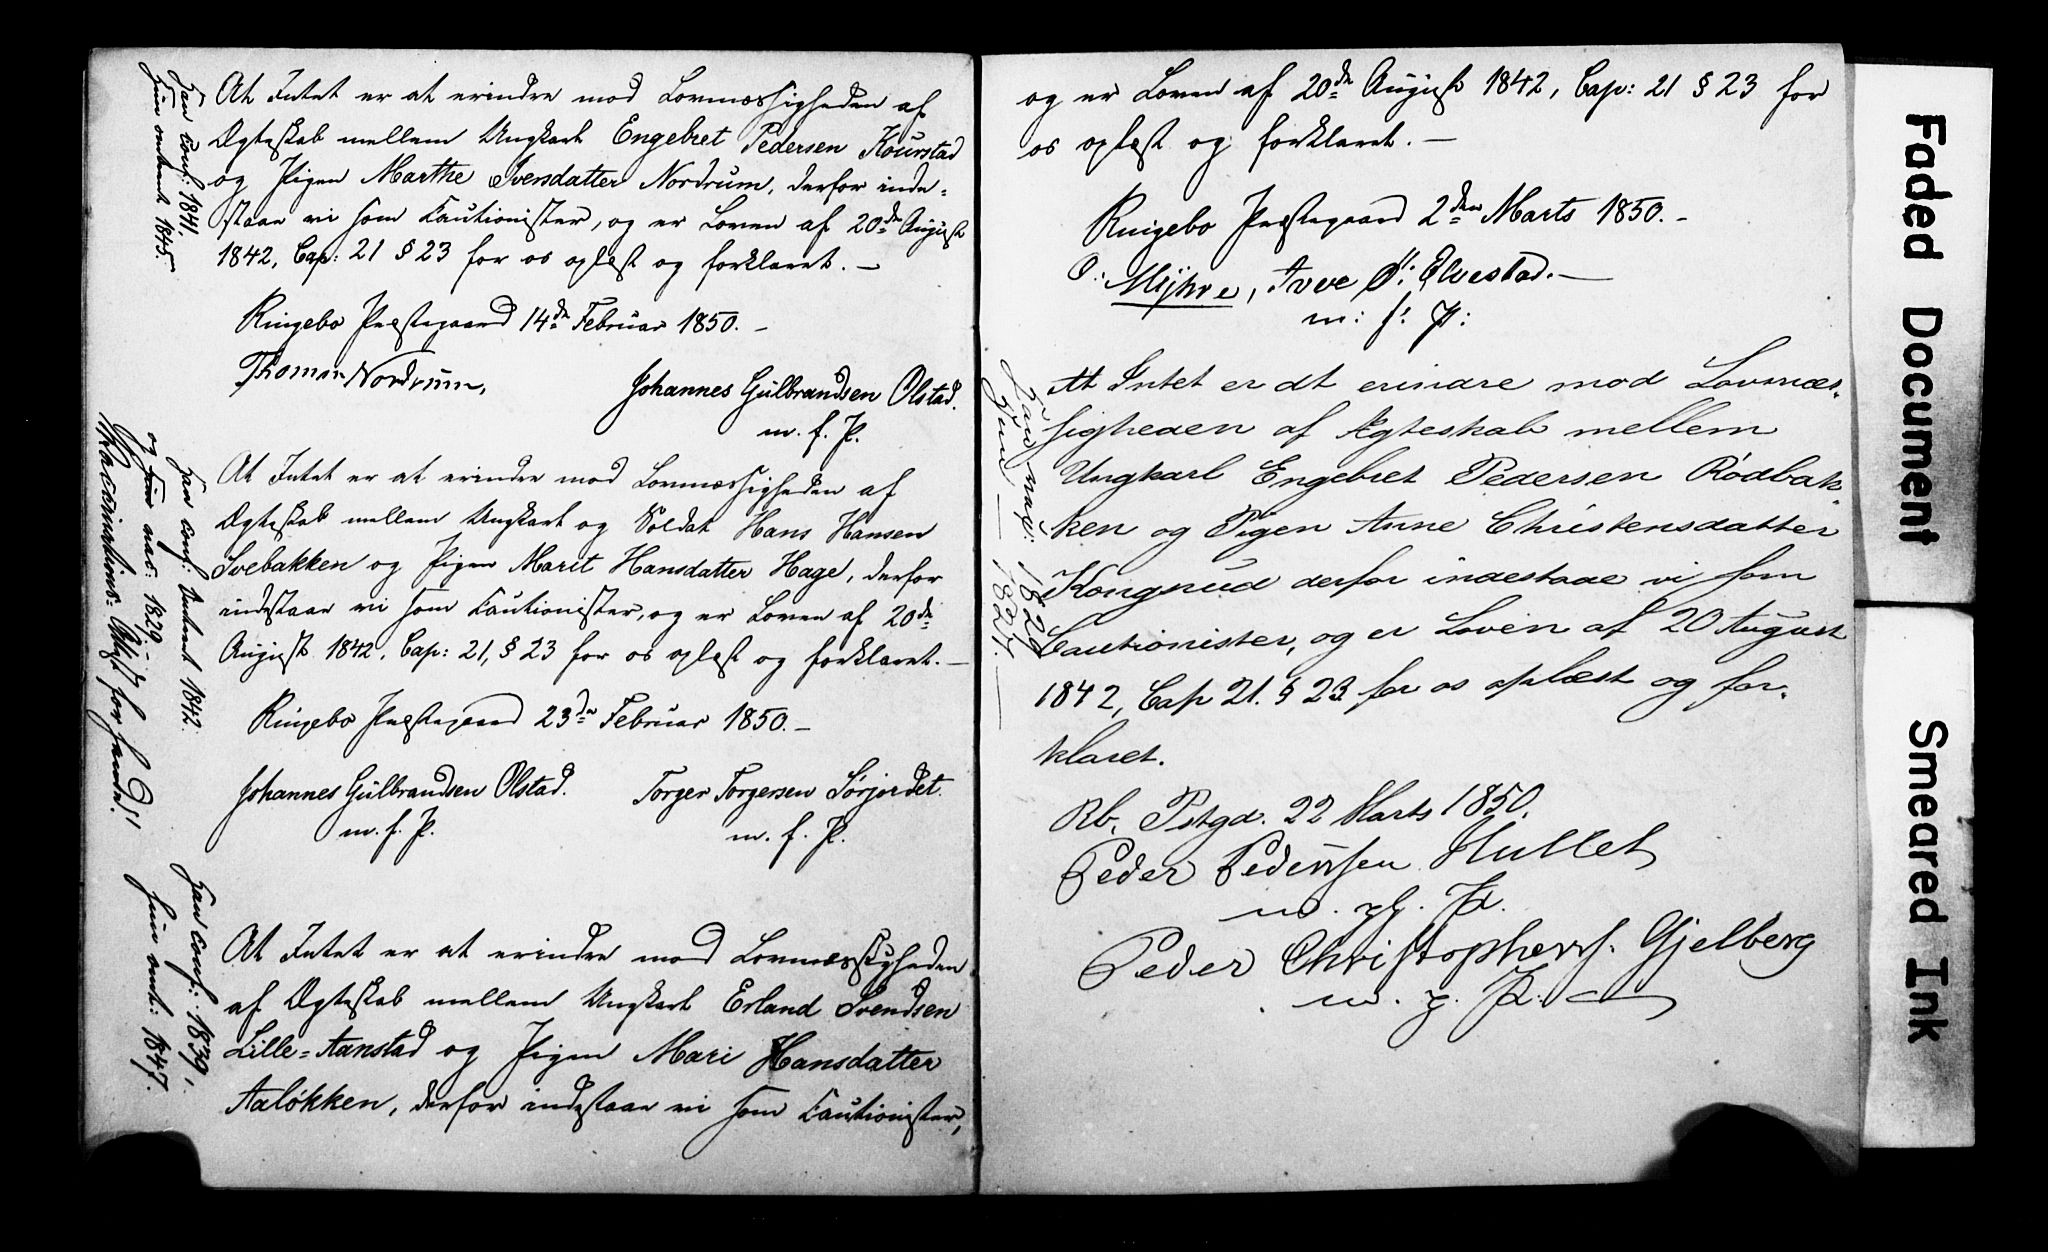 At Intet er at erindre mod Lovmæssigheden af
Ægteskab mellem Ungkarl Engebret Pedersen Kourstad
og Pigen Marthe Iversdatter Nordrum, derfor inde-
staae vi som Cautionister, og er Loven af 20de August
1842, Cap: 21 § 23 for os oplæst og forklaret. —
Ringebo Præstegaard 14de Februar 1850. —
Thomas Nordrum,
Johannes Gulbrandsen Olstad.
m. f. P.
Han conf: 1841.
hun omtrent 1845.
At Intet er at erindre mod Lovmæssigheden af
Ægteskab mellem Ungkarl og Soldat Hans Hansen
Svebakken og Pigen Marit Hansdatter Hage, derfor
indestaae vi som Cautionister, og er Loven af 20de
August 1842, Cap: 21, § 23 for os oplæst og forklaret. —
Ringebo Præstegaard 23de Februar 1850. —
Johannes Gulbrandsen Olstad.
m. f. P.
Torger Torgersen Sørjordet
m. f. P.
Han conf: 1842.
og hun vac: 1829. —
Vaccinations-Attest forhaanden!
At Intet er at erindre mod Lovmæssigheden
af Ægteskab mellem Ungkarl Erland Svendsen
Lille-Aanstad og Pigen Mari Hansdatter
Aaløkken, derfor indestaae vi som Cautionister,
Han conf: 1839,
hun omt: 1847.
og er Loven af 20de August 1842, Cap: 21 § 23 for
os oplæst og forklaret. —
Ringebo Præstegaard 2den Marts 1850. —
O: Myhre, Iver O: Elvestad. —
m: f: P:
At Intet er at erindre mod Lovmæs-
sigheden af Ægteskab mellem
Ungkarl Engebret Pedersen Rødbak-
ken og Pigen Anne Christensdatter
Kongsrud derfor indestaae vi som
Cautionister, og er Loven af 20 August
1842, Cap 21. § 23 for os oplæst og for-
klaret.
Rb. Pstgd. 22 Marts 1850.
Peder Pederssen Hullet
m. p. P.
Peder Christophers. Gjelberg
m. p. P.
Han vax: 1820
Hun — 1825. —
Faded Document
Smeared Ink